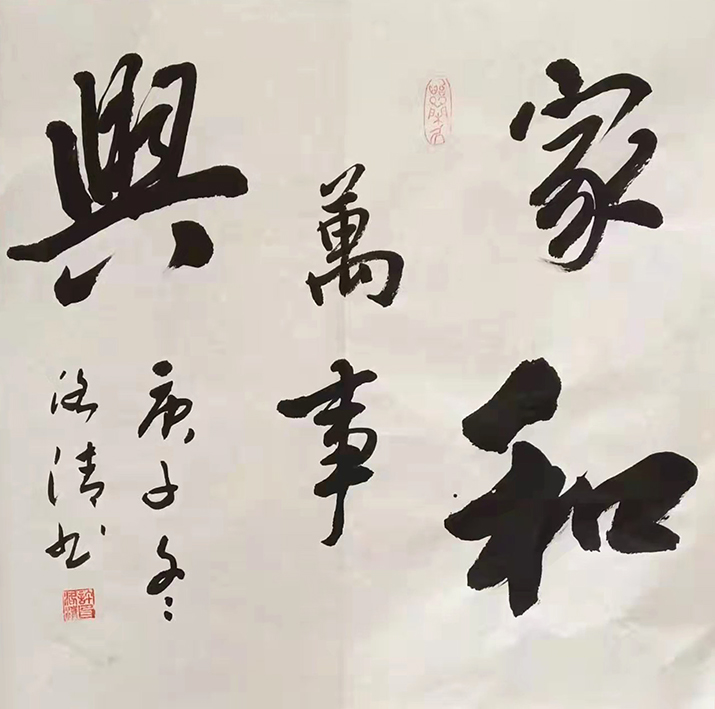 家和
萬事
興
庚子冬
洛清书